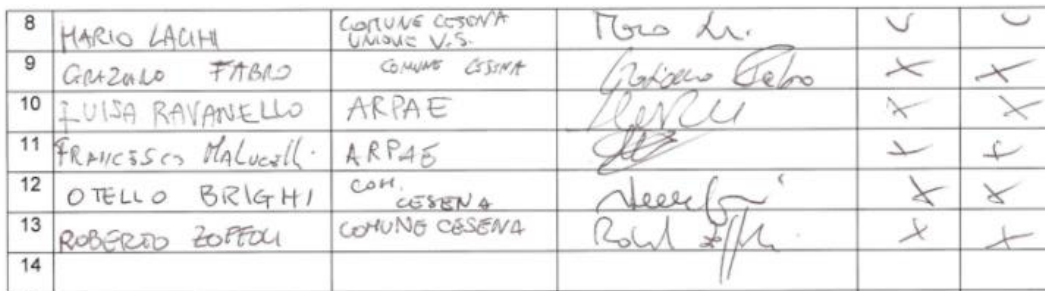 8 MARIO LACHI COMUNE CESENA
UNIONE V.S.
9 GRAZIANO FABRO COMUNE CESENA Graziano Fabro
10 LUISA RAVANELLO ARPAE
11 FRANCESCO MALUCELLI ARPAE
12 OTELLO BRIGHI COM.
CESENA
13 ROBERTO ZOFFOLI COMUNE CESENA
14